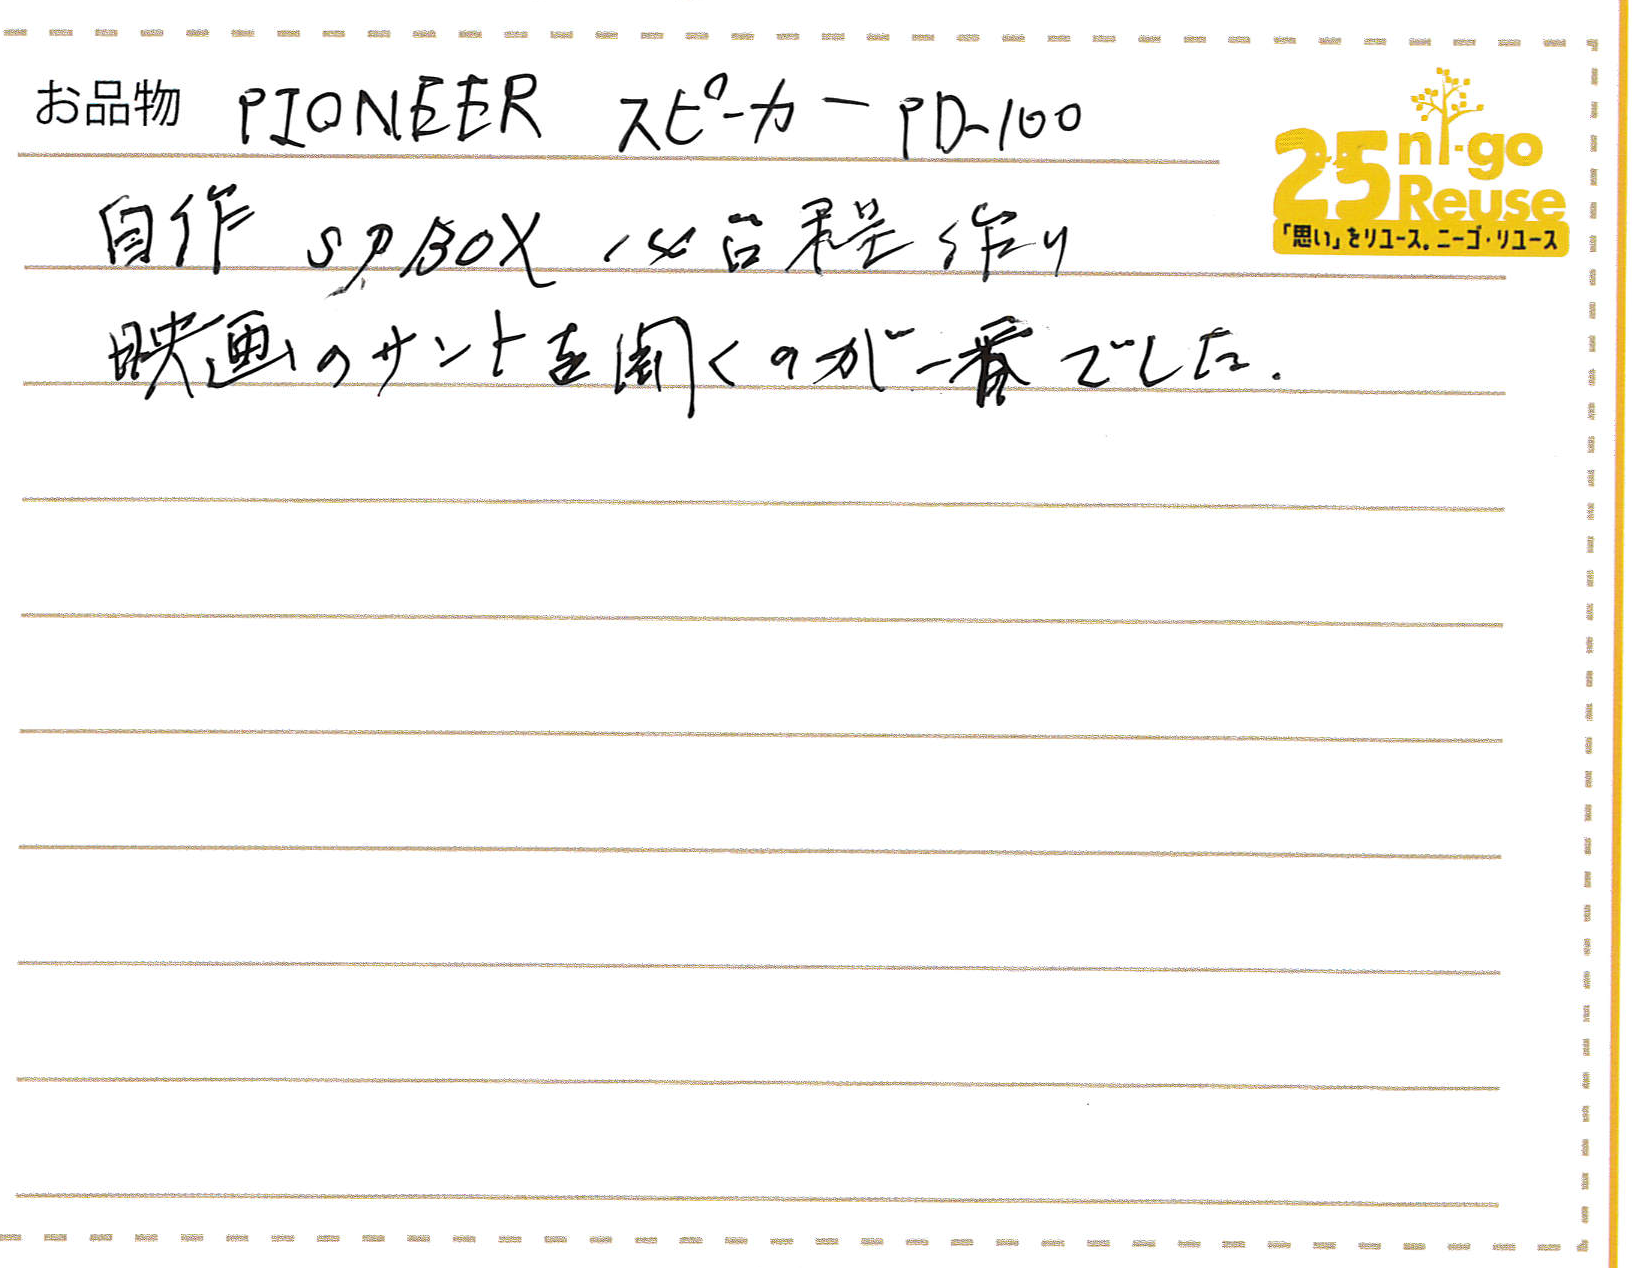 お品物 PIONEER スピーカー PD-100
25 ni-go
Reuse
「思い」をリユース。ニーゴ・リユース
自作 SPBOX 台程作り
映画のサントを聞くのが一番でした.